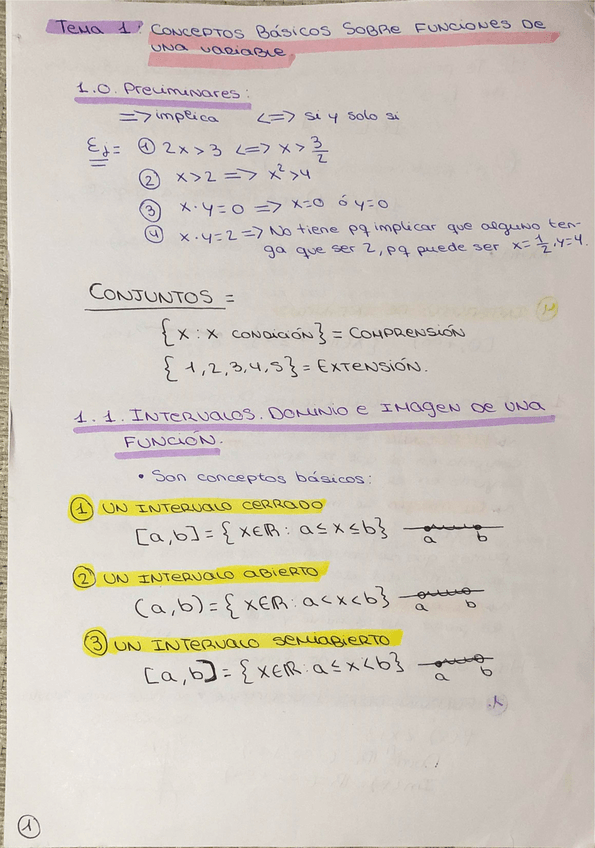 TEMA 1: CONCEPTOS BÁSICOS SOBRE FUNCIONES DE
UNA VARIABLE.
1.0. Preliminares:
=> implica <=> si y solo si
Ej= ① 2x>3 <=> x>3/2
② x>2 => x²>4
③ x·y=0 => x=0 ó y=0
④ x·y=2 => No tiene pq implicar que alguno ten-
ga que ser 2, pq puede ser x=1/2·y=4.
CONJUNTOS =
{x: x CONDICIÓN} = COMPRENSIÓN
{1,2,3,4,5} = EXTENSIÓN.
1.1. INTERVALOS. DOMINIO E IMAGEN DE UNA
FUNCIÓN.
• Son conceptos básicos:
① UN INTERVALO CERRADO
[a,b]={x∈ℝ: a≤x≤b} a b
② UN INTERVALO ABIERTO
(a,b)={x∈ℝ: a<x<b} a b
③ UN INTERVALO SEMIABIERTO
[a,b]={x∈ℝ: a≤x<b} a b
①